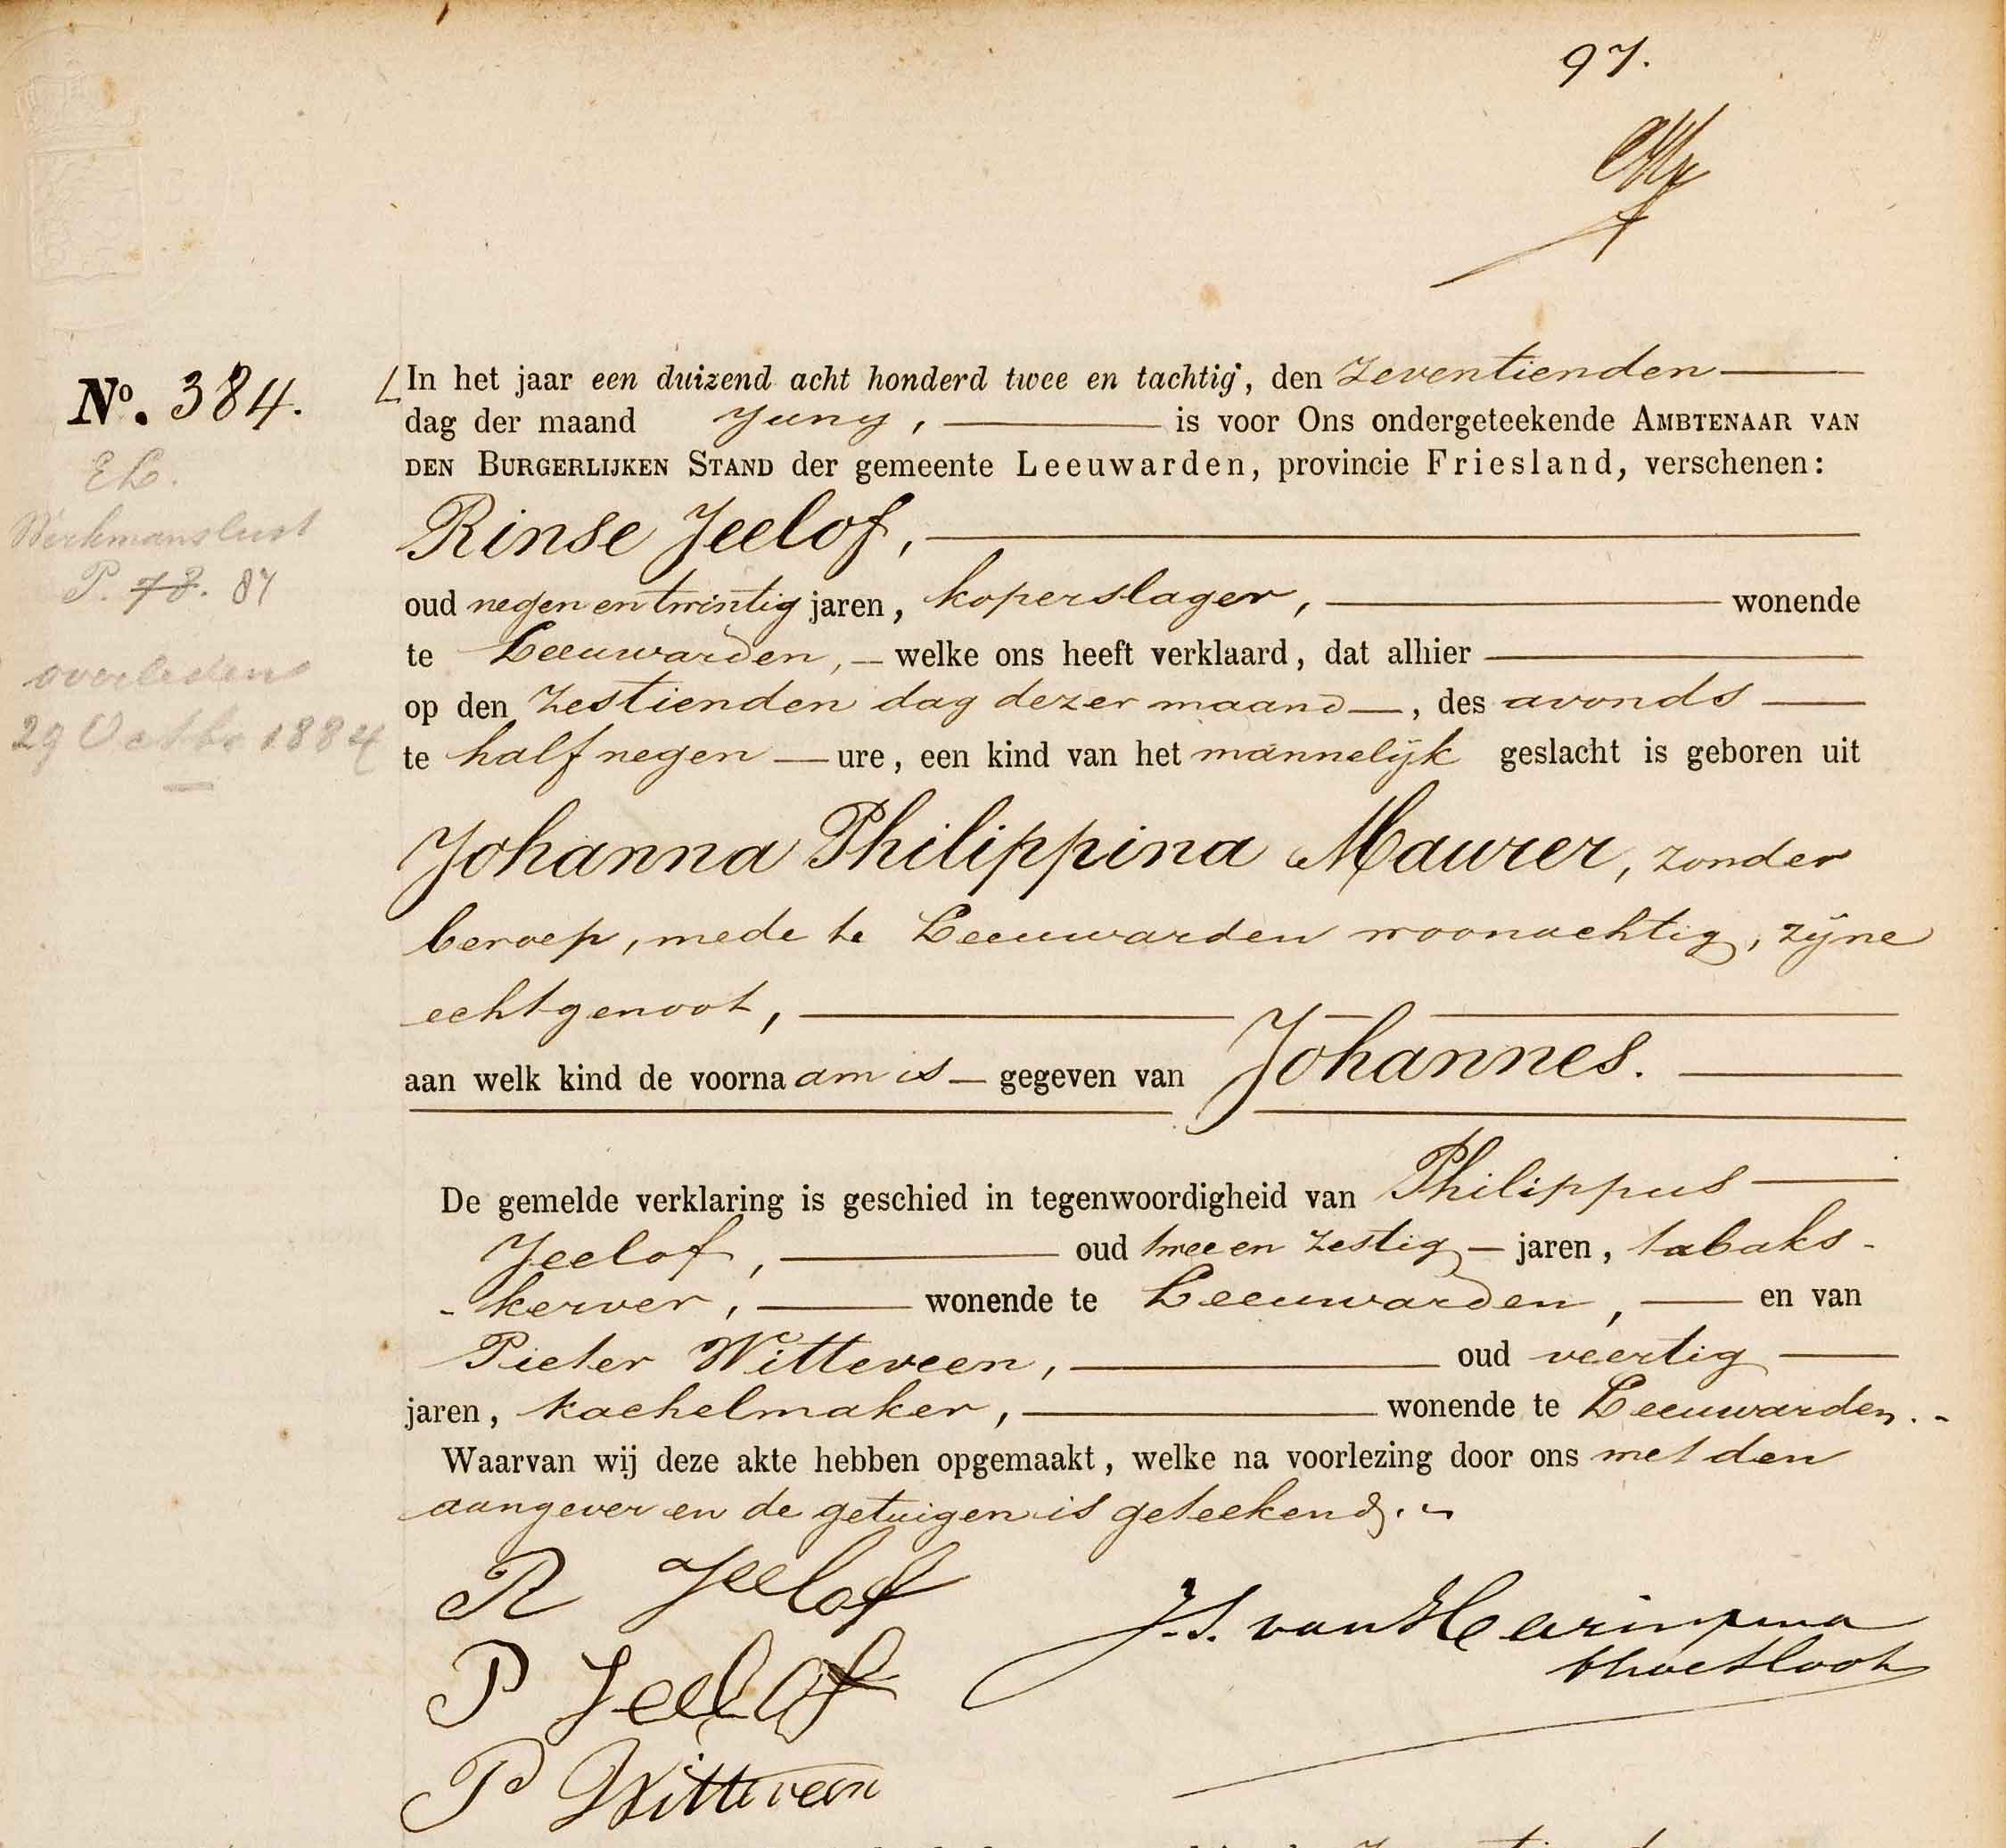 97.
No. 384.
EL.
Werkmanslust
P. 78. 87
overleden
29 Octbr 1884
In het jaar een duizend acht honderd twee en tachtig, den zeventienden
dag der maand Juny, is voor Ons ondergeteekende AMBTENAAR VAN
DEN BURGERLIJKEN STAND der gemeente Leeuwarden, provincie Friesland, verschenen:
Rinse Jeelof,
oud negen en twintig jaren, koperslager, wonende
te Leeuwarden, welke ons heeft verklaard, dat alhier
op den zestienden dag dezer maand, des avonds
te half negen ure, een kind van het mannelijk geslacht is geboren uit
Johanna Philippina Maurer, zonder
beroep, mede te Leeuwarden woonachtig, zijne
echtgenoot,
aan welk kind de voornaam is gegeven van Johannes.
De gemelde verklaring is geschied in tegenwoordigheid van Philippus
Jeelof, oud twee en zestig jaren, tabaks-
-kerver, wonende te Leeuwarden, en van
Pieter Witteveen, oud veertig
jaren, kachelmaker, wonende te Leeuwarden.
Waarvan wij deze akte hebben opgemaakt, welke na voorlezing door ons met den
aangever en de getuigen is geteekend.
R Jeelof
J. S. van Harinxma
thoe Slooten
P Jeelof
P Witteveen